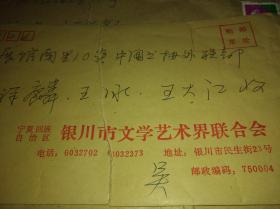 农展馆南里10号中国文协外联部
王冰、王大江收
宁夏回族
自治区
银川市文学艺术界联合会
电话：6032702 6032373 地址：银川市民生街23号
吴
邮政编码：750004